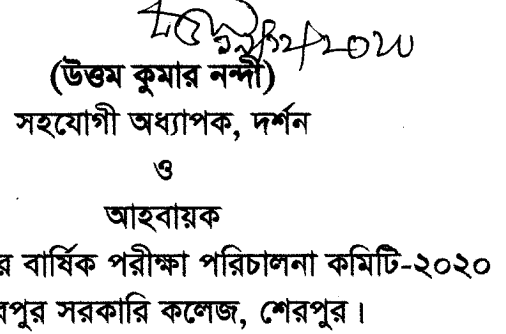 (উত্তম কুমার নন্দী)
সহযোগী অধ্যাপক, দর্শন
ও
আহবায়ক
র বার্ষিক পরীক্ষা পরিচালনা কমিটি-২০২০
রপুর সরকারি কলেজ, শেরপুর।